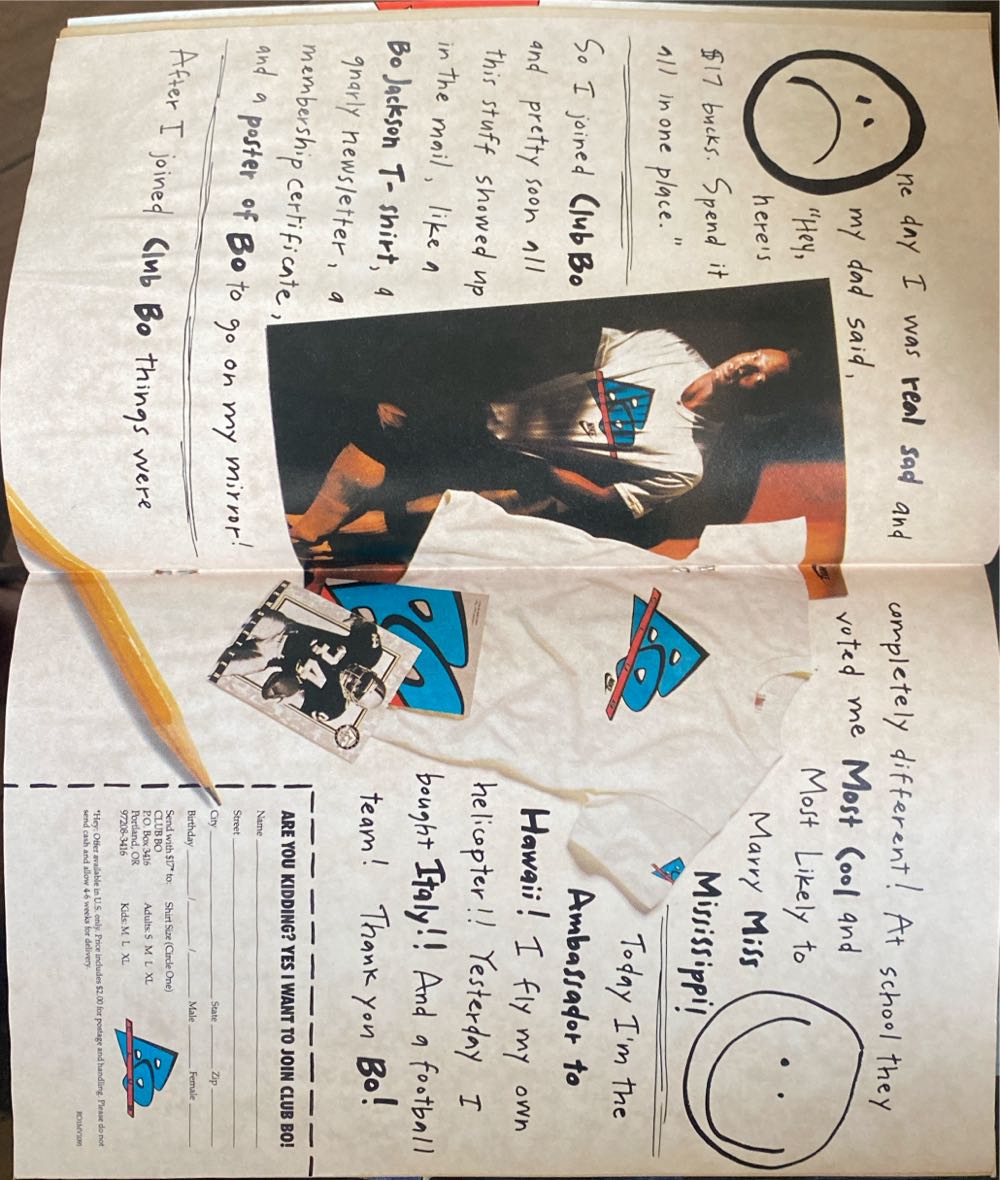 One day I was real sad and
my dad said,
"Hey,
here's
$17 bucks. Spend it
all in one place."
So I joined Club Bo
and pretty soon all
this stuff showed up
in the mail, like a
Bo Jackson T-shirt, a
gnarly newsletter, a
membership certificate,
and a poster of Bo to go on my mirror!
After I joined Club Bo things were
BO
NIKE
BO
NIKE
34
completely different! At school they
voted me Most Cool and
Most Likely to
Marry Miss
Mississippi!
Today I'm the
Ambassador to
Hawaii! I fly my own
helicopter!! Yesterday I
bought Italy!! And a football
team! Thank you Bo!
ARE YOU KIDDING? YES I WANT TO JOIN CLUB BO!
Name
Street
City State Zip
Birthday / / Male Female
Send with $17* to: Shirt Size (Circle One)
CLUB BO Adults: S M L XL
P.O. Box 3416
Portland, OR Kids: M L XL
97208-3416
BO
*Hey: Offer available in U.S. only. Price includes $2.00 for postage and handling. Please do not
send cash and allow 4-6 weeks for delivery.